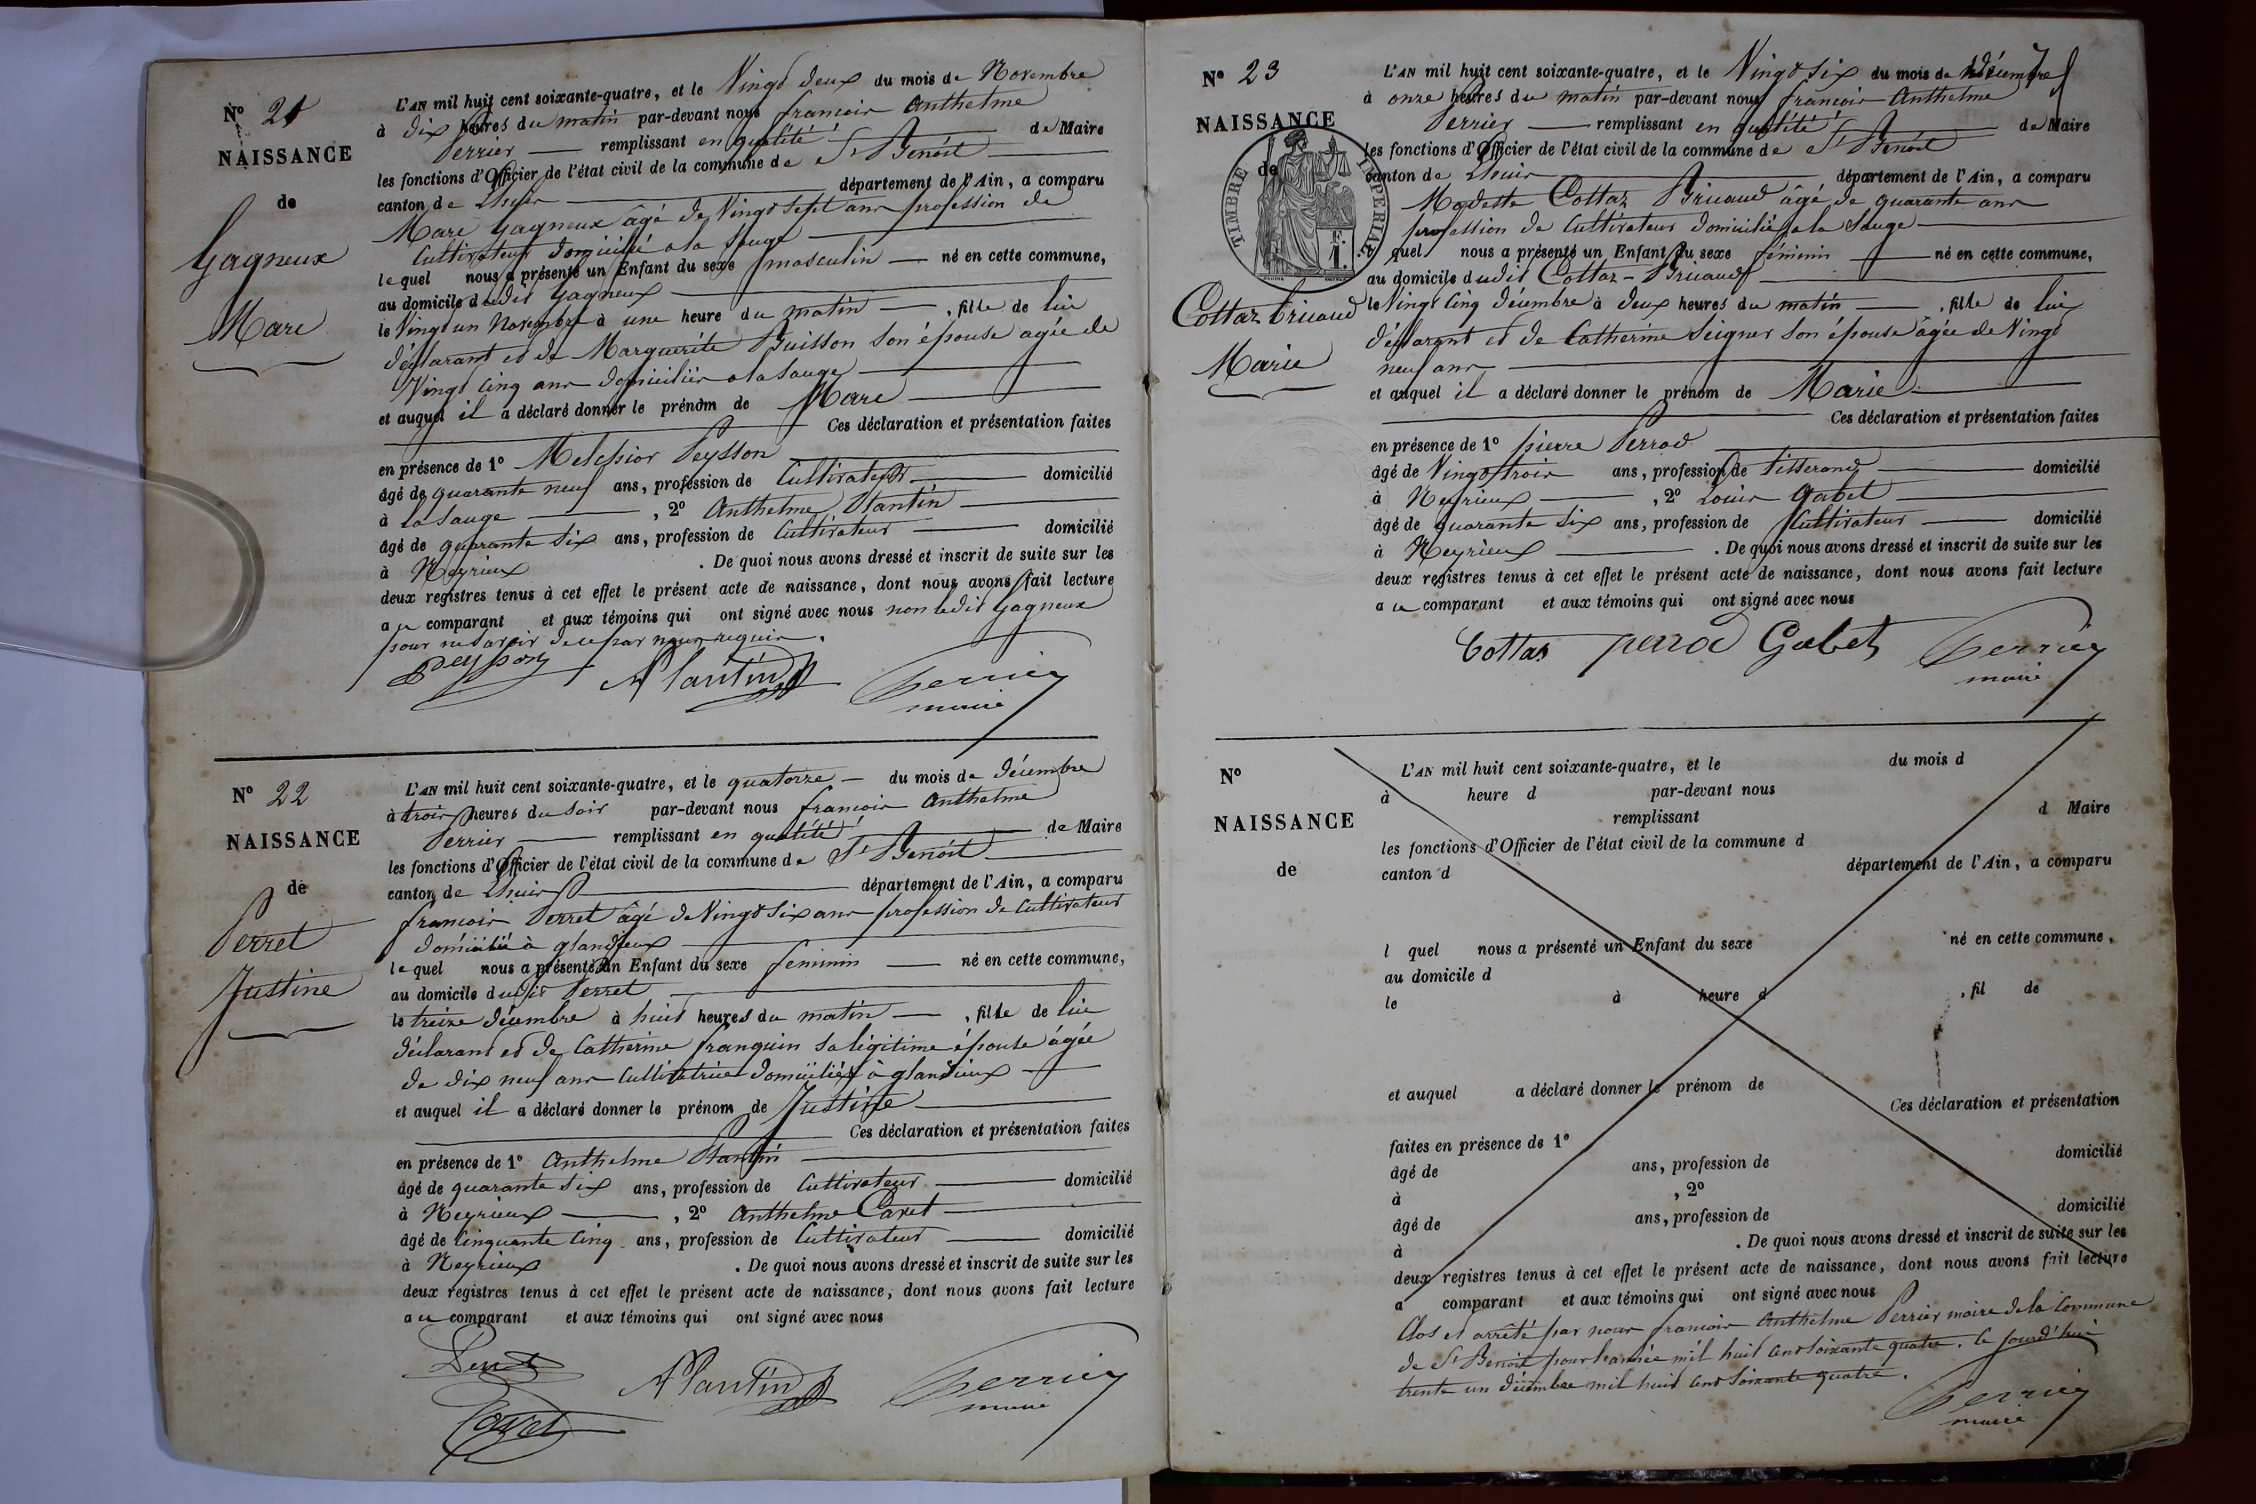 N° 21
NAISSANCE
de
Gagneux
Marc
L'AN mil huit cent soixante-quatre, et le Vingt deux du mois de Novembre
à dix heures du matin par-devant nous françois Anthelme
Perrier remplissant en qualité de Maire
les fonctions d'Officier de l'état civil de la commune de St Benoit
canton de Lhuis département de l'Ain, a comparu
Marc Gagneux âgé de Vingt sept ans profession de
Cultivateur domicilié a la Sauge
le quel nous a présenté un Enfant du sexe masculin né en cette commune,
au domicile dudit Gagneux
le Vingt un Novembre à une heure du matin, fils de lui
déclarant et de Marguerite Buisson son épouse agée de
Vingt cinq ans domiciliés a la Sauge
et auquel il a déclaré donner le prénom de Marc
Ces déclaration et présentation faites
en présence de 1° Melchior Peysson
âgé de quarante neuf ans, profession de Cultivateur domicilié
à la Sauge, 2° Anthelme Plantin
âgé de quarante six ans, profession de Cultivateur domicilié
à Neyrieux. De quoi nous avons dressé et inscrit de suite sur les
deux registres tenus à cet effet le présent acte de naissance, dont nous avons fait lecture
au comparant et aux témoins qui ont signé avec nous non ledit Gagneux
pour ne savoir de ce par nous requis.
Peysson A Plantin Perrier
maire
N° 22
NAISSANCE
de
Perret
Justine
L'AN mil huit cent soixante-quatre, et le quatorze du mois de décembre
à trois heures du soir par-devant nous françois Anthelme
Perrier remplissant en qualité de Maire
les fonctions d'Officier de l'état civil de la commune de St Benoit
canton de Lhuis département de l'Ain, a comparu
françois Perret âgé de Vingt six ans profession de Cultivateur
domicilié à glandieux
le quel nous a présenté un Enfant du sexe feminin né en cette commune,
au domicile dudit Perret
le treize décembre à huit heures du matin, fille de lui
déclarant et de Catherine franquin sa légitime épouse âgée
de dix neuf ans Cultivatrice domiciliés à glandieux
et auquel il a déclaré donner le prénom de Justine
Ces déclaration et présentation faites
en présence de 1° Anthelme Plantin
âgé de quarante six ans, profession de Cultivateur domicilié
à Neyrieux, 2° Anthelme Cavet
âgé de Cinquante Cinq ans, profession de Cultivateur domicilié
à Neyrieux. De quoi nous avons dressé et inscrit de suite sur les
deux registres tenus à cet effet le présent acte de naissance, dont nous avons fait lecture
au comparant et aux témoins qui ont signé avec nous
Perret
A Plantin Perrier
maire
Cavet
N° 23
NAISSANCE
de
TIMBRE IMPERIAL
Cottaz bricaud
Marie
L'AN mil huit cent soixante-quatre, et le Vingt six du mois de décembre
à onze heures du matin par-devant nous françois Anthelme
Perrier remplissant en qualité de Maire
les fonctions d'Officier de l'état civil de la commune de St Benoit
canton de Lhuis département de l'Ain, a comparu
Modeste Cottaz Bricaud âgé de quarante ans
profession de Cultivateur domicilié a la Sauge
le quel nous a présenté un Enfant du sexe féminin né en cette commune,
au domicile dudit Cottaz-Bricaud
le Vingt Cinq décembre à deux heures du matin, fille de lui
déclarant et de Catherine Seigner son épouse âgée de Vingt
neuf ans
et auquel il a déclaré donner le prénom de Marie
Ces déclaration et présentation faites
en présence de 1° pierre Perrod
âgé de Vingt trois ans, profession de tisserand domicilié
à Neyrieux, 2° Louis Gabet
âgé de quarante six ans, profession de Cultivateur domicilié
à Neyrieux. De quoi nous avons dressé et inscrit de suite sur les
deux registres tenus à cet effet le présent acte de naissance, dont nous avons fait lecture
au comparant et aux témoins qui ont signé avec nous
Cottas perrod Gabet Perrier
maire
N°
NAISSANCE
de
L'AN mil huit cent soixante-quatre, et le du mois d
à heure d par-devant nous
remplissant d Maire
les fonctions d'Officier de l'état civil de la commune d
canton d département de l'Ain, a comparu
l quel nous a présenté un Enfant du sexe né en cette commune,
au domicile d
le à heure d, fil de
et auquel a déclaré donner le prénom de
Ces déclaration et présentation
faites en présence de 1°
âgé de ans, profession de domicilié
à, 2°
âgé de ans, profession de domicilié
à. De quoi nous avons dressé et inscrit de suite sur les
deux registres tenus à cet effet le présent acte de naissance, dont nous avons fait lecture
a comparant et aux témoins qui ont signé avec nous
Clos et arrêté par nous francois Anthelme Perrier maire de la Commune
de St Benoit pour l'année mil huit cent soixante quatre. ce jourd'hui
trente un décembre mil huit cent soixante quatre.
Perrier
maire